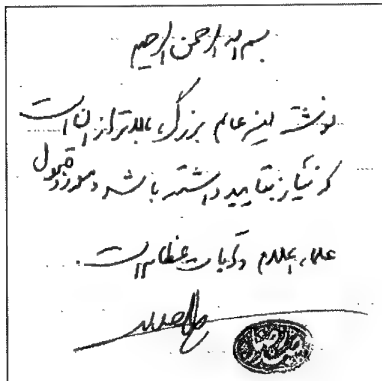 بسم الله الرحمن الرحیم
نوشته این عالم بزرگ، بالاتر از آن است
که نیاز بتایید داشته باشد و مورد قبول
علماء اعلام و آیات عظام است.